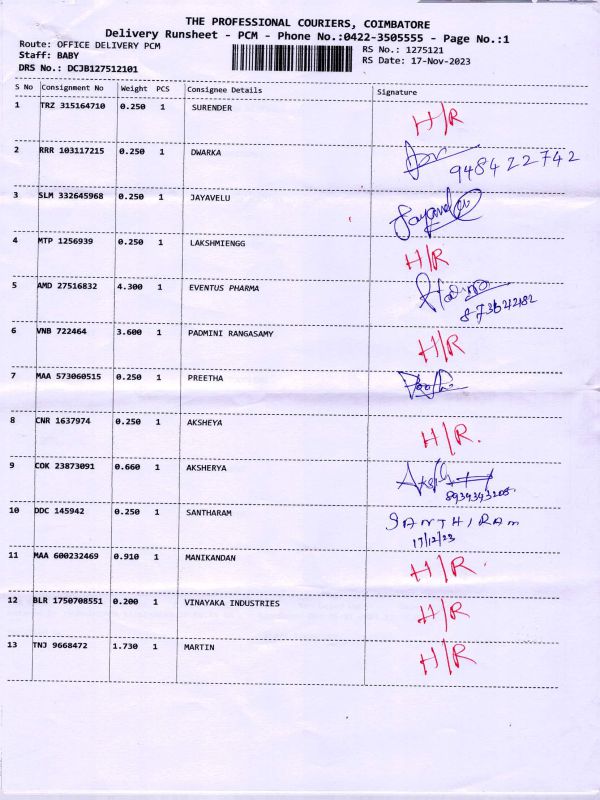 THE PROFESSIONAL COURIERS, COIMBATORE
Delivery Runsheet - PCM - Phone No.:0422-3505555 - Page No.:1
Route: OFFICE DELIVERY PCM
Staff: BABY
DRS No.: DCJB127512101
RS No.: 1275121
RS Date: 17-Nov-2023
S No Consignment No Weight PCS Consignee Details Signature
1 TRZ 315164710 0.250 1 SURENDER H/R
2 RRR 103117215 0.250 1 DWARKA
948422742
3 SLM 332645968 0.250 1 JAYAVELU Jayavelu
4 MTP 1256939 0.250 1 LAKSHMIENGG H/R
5 AMD 27516832 4.300 1 EVENTUS PHARMA
6 VNB 722464 3.600 1 PADMINI RANGASAMY H/R
7 MAA 573060515 0.250 1 PREETHA
8 CNR 1637974 0.250 1 AKSHEYA H/R.
9 COK 23873091 0.660 1 AKSHERYA
8939393205
10 DDC 145942 0.250 1 SANTHARAM SANTHIRAM
17/12/23
11 MAA 600232469 0.910 1 MANIKANDAN H/R.
12 BLR 1750708551 0.200 1 VINAYAKA INDUSTRIES H/R
13 TNJ 9668472 1.730 1 MARTIN H/R